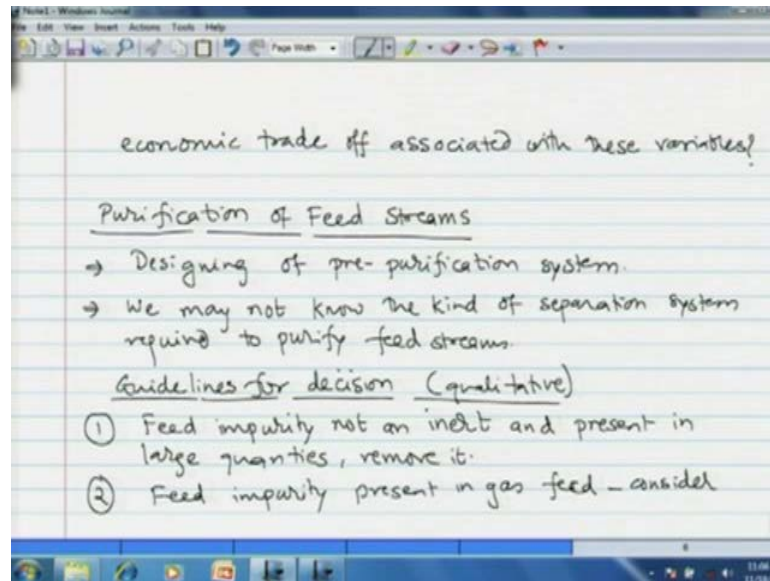 Note1 - Windows Journal
File Edit View Insert Actions Tools Help
Page Width
economic trade off associated with these variables?
Purification of Feed Streams
→ Designing of pre-purification system.
→ We may not know the kind of separation system
required to purify feed streams.
Guidelines for decision (qualitative)
① Feed impurity not an inert and present in
large quanties, remove it.
② Feed impurity present in gas feed - consider
6